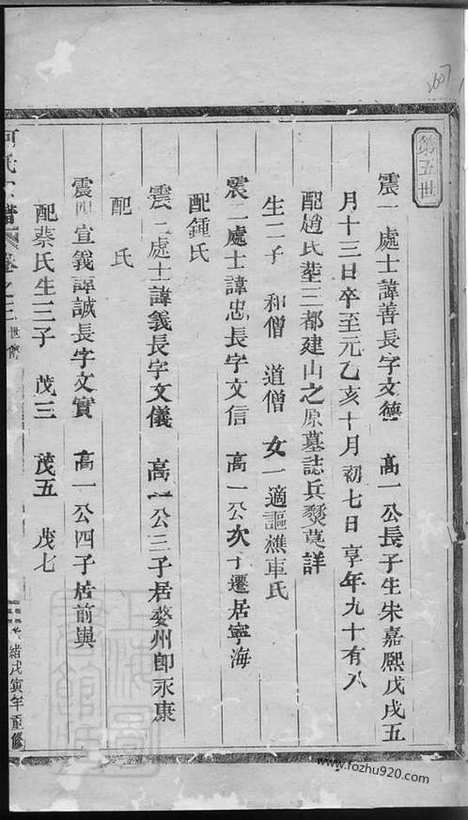 第五世
震一處士諱善長字文德 高一公長子生宋嘉熙戊戌五
月十三日卒至元乙亥十月初七日享年九十有八
配趙氏塟三都建山之原墓誌兵燹莫詳
生二子 和僧 道僧 女一適謳樵車氏
震二處士諱忠長字文信 高一公次子遷居寧海
配鍾氏
震三處士諱義長字文儀 高一公三子居婺州卽永康
配 氏
震四宣義諱誠長字文實 高一公四子居前與
配蔡氏生三子 茂三 茂五 茂七
何氏 譜 卷之 世
光緒戊寅年重修
607
www.fozhu920.com